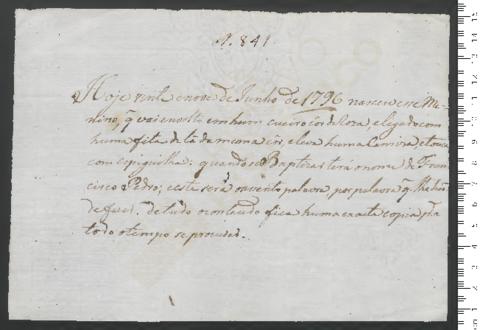 N. 841
Hoje vinte e nove de Junho de 1796 nasceo este Me-
nino, q̃ vai envolto em hum cueiro cor de roza, e legado com
huma fita de lã da mesma cor, e leva huma Camiza, e touca
com espiguilha: quando se Baptizar terá o nome de Fran-
cisco Pedro; e este será o assento palavra por palavra q̃ se lhe há
de fazer. de tudo o conteudo fica huma exacta copia p.ª
todo o tempo se procurar.